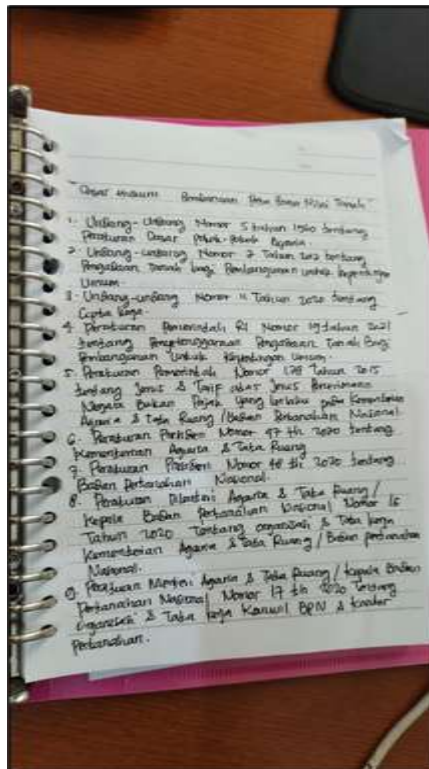 "Dasar Hukum Pembaruan Peta Zona Nilai Tanah"
1. Undang-Undang Nomor 5 tahun 1960 tentang
Peraturan Dasar Pokok-Pokok Agraria.
2. Undang-undang Nomor 2 Tahun 2012 tentang
Pengadaan Tanah bagi Pembangunan untuk Kepentingan
Umum
3. Undang-undang Nomor 11 Tahun 2020 tentang
Cipta Kerja.
4. Peraturan Pemerintah RI Nomor 19 tahun 2021
tentang Penyelenggaraan Pengadaan Tanah Bagi
Pembangunan Untuk Kepentingan Umum.
5. Peraturan Pemerintah Nomor 128 Tahun 2015
tentang Jenis & Tarif atas Jenis Penerimaan
Negara Bukan Pajak yang berlaku pada Kementerian
Agraria & Tata Ruang/Badan Pertanahan Nasional.
6. Peraturan Presiden Nomor 47 th 2020 tentang
Kementerian Agraria & Tata Ruang
7. Peraturan Presiden Nomor 48 th 2020 tentang
Badan Pertanahan Nasional.
8. Peraturan Menteri Agraria & Tata Ruang/
Kepala Badan Pertanahan Nasional Nomor 16
Tahun 2020 Tentang organisasi & Tata kerja
Kementerian Agraria & Tata Ruang/Badan pertanahan
Nasional.
9. Peraturan Menteri Agraria & Tata Ruang/kepala Badan
Pertanahan Nasional Nomor 17 th 2020 tentang
organisasi & Tata kerja Kanwil BPN & kantor
Pertanahan.